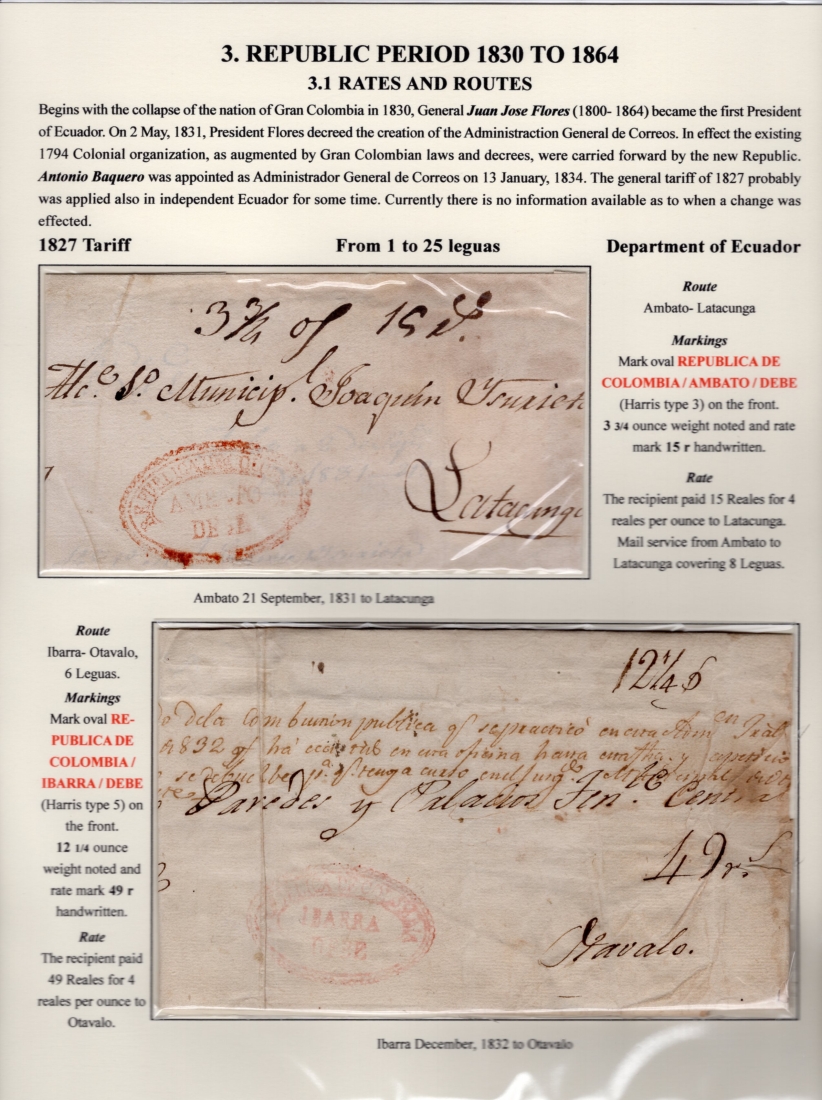 3. REPUBLIC PERIOD 1830 TO 1864
3.1 RATES AND ROUTES
Begins with the collapse of the nation of Gran Colombia in 1830, General Juan Jose Flores (1800- 1864) became the first President
of Ecuador. On 2 May, 1831, President Flores decreed the creation of the Administraction General de Correos. In effect the existing
1794 Colonial organization, as augmented by Gran Colombian laws and decrees, were carried forward by the new Republic.
Antonio Baquero was appointed as Administrador General de Correos on 13 January, 1834. The general tariff of 1827 probably
was applied also in independent Ecuador for some time. Currently there is no information available as to when a change was
effected.
1827 Tariff From 1 to 25 leguas Department of Ecuador
3 3/4 of 15
Municip.l Joaquin
AMBATO
DEBE
Latacunga
Ambato 21 September, 1831 to Latacunga
Route
Ambato- Latacunga
Markings
Mark oval REPUBLICA DE
COLOMBIA / AMBATO / DEBE
(Harris type 3) on the front.
3 3/4 ounce weight noted and rate
mark 15 r handwritten.
Rate
The recipient paid 15 Reales for 4
reales per ounce to Latacunga.
Mail service from Ambato to
Latacunga covering 8 Leguas.
Route
Ibarra- Otavalo,
6 Leguas.
Markings
Mark oval RE-
PUBLICA DE
COLOMBIA /
IBARRA / DEBE
(Harris type 5) on
the front.
12 1/4 ounce
weight noted and
rate mark 49 r
handwritten.
Rate
The recipient paid
49 Reales for 4
reales per ounce to
Otavalo.
12 1/4
publica
1832 oficina para
Paredes y Palacios Ten.e Central
49 r.s
IBARRA
DEBE
Otavalo.
Ibarra December, 1832 to Otavalo